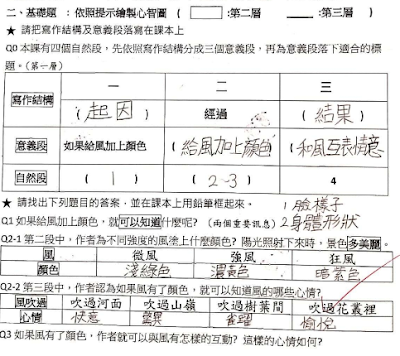 二、基礎題 :依照提示繪製心智圖 ( :第二層 :第三層 )
★ 請把寫作結構及意義段落寫在課本上
Q0 本課有四個自然段,先依照寫作結構分成三個意義段,再為意義段落下適合的標
題。(第一層)
一 二 三
寫作結構 ( 起因 ) 經過 ( 結果 )
意義段 如果給風加上顏色 ( 給風加上顏色 ) ( 和風互表情意 )
自然段 ( 1 ) ( 2~3 ) 4
★ 請找出下列題目的答案,並在課本上用鉛筆框起來。 1臉樣子
Q1 如果給風加上顏色,就可以知道什麼呢? (兩個重要訊息) 2身體形狀
Q2-1 第二段中,作者為不同強度的風塗上什麼顏色? 陽光照射下來時,景色多美麗。
風 微風 強風 狂風
顏色 淺綠色 濃黃色 暗紫色
Q2-2 第三段中,作者認為如果風有了顏色,就可以知道風的哪些心情?
風吹過 吹過河面 吹過山嶺 吹過樹葉間 吹過花叢裡
心情 快意 驚異 雀躍 愉悅
Q3 如果風有了顏色,作者就可以與風有怎樣的互動? 這樣的心情如何?